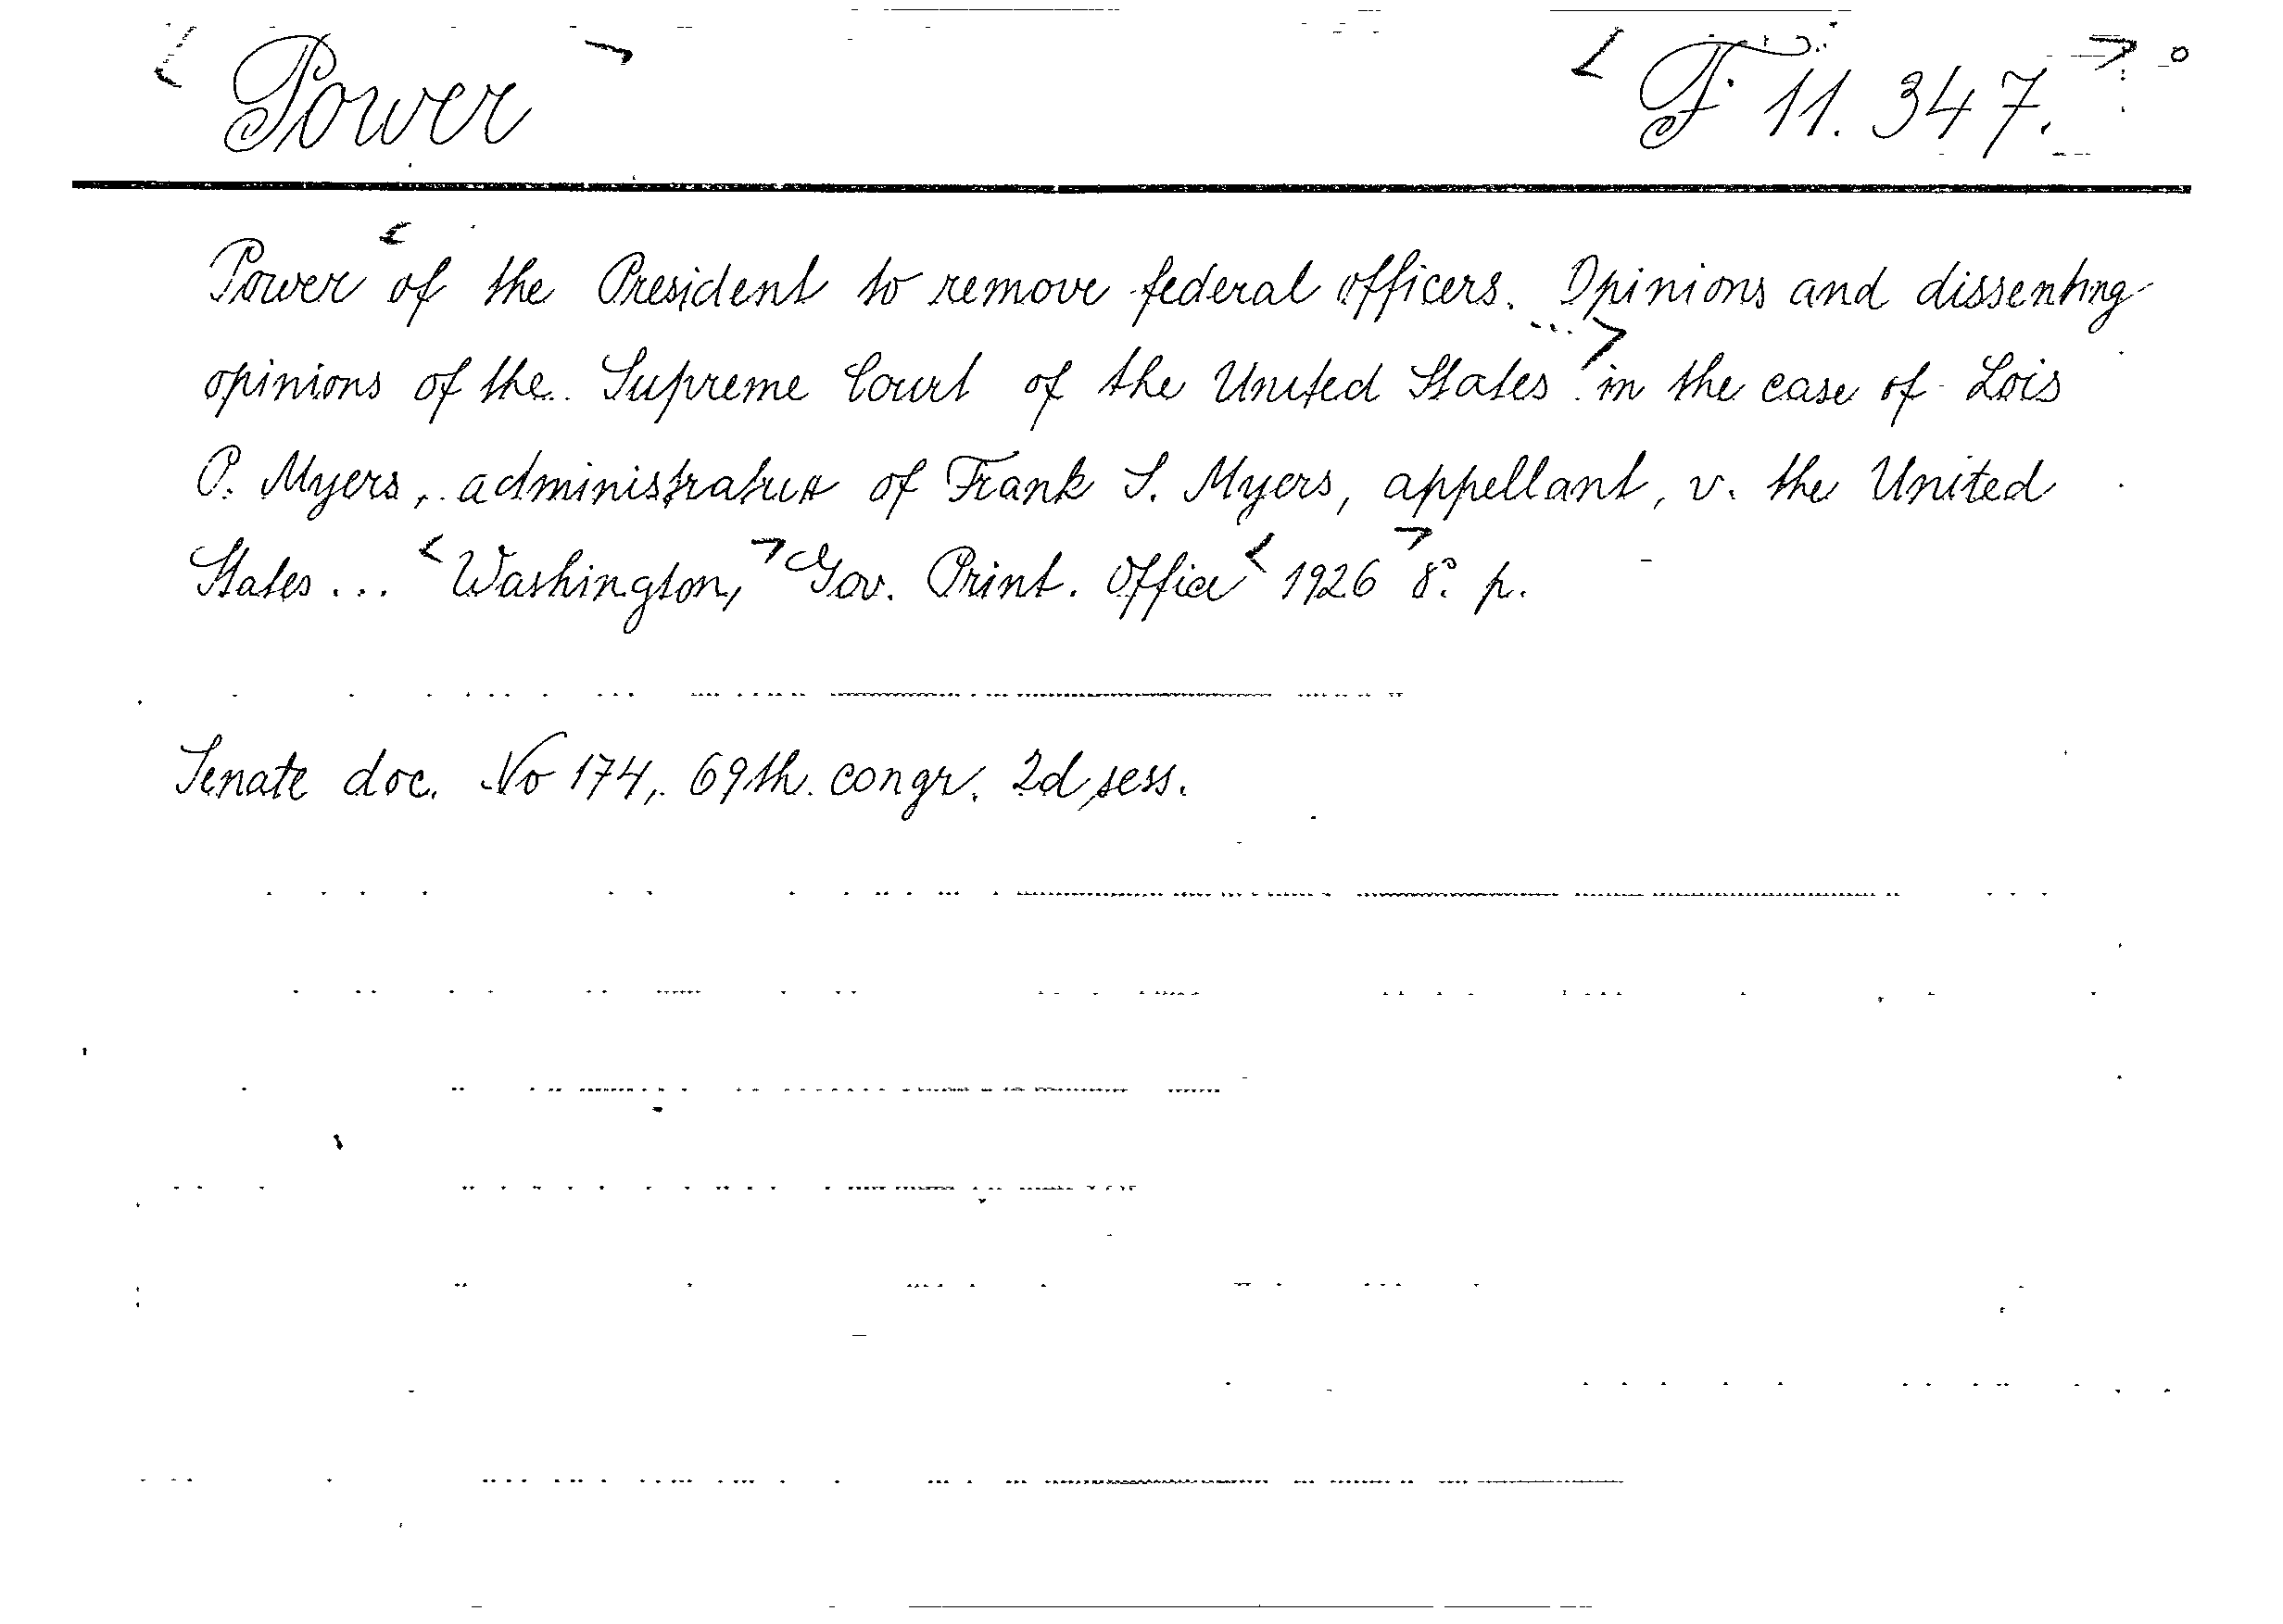 < Power >
< F 11.347. >
Power < of the President to remove federal officers. Opinions and dissenting
opinions of the Supreme Court of the United States ... > in the case of Lois
P. Myers, administratrix of Frank S. Myers, appellant, v. the United
States ... < Washington, > Gov. Print. Office < 1926 > 8° p.
Senate doc. No 174, 69th. congr. 2d sess.